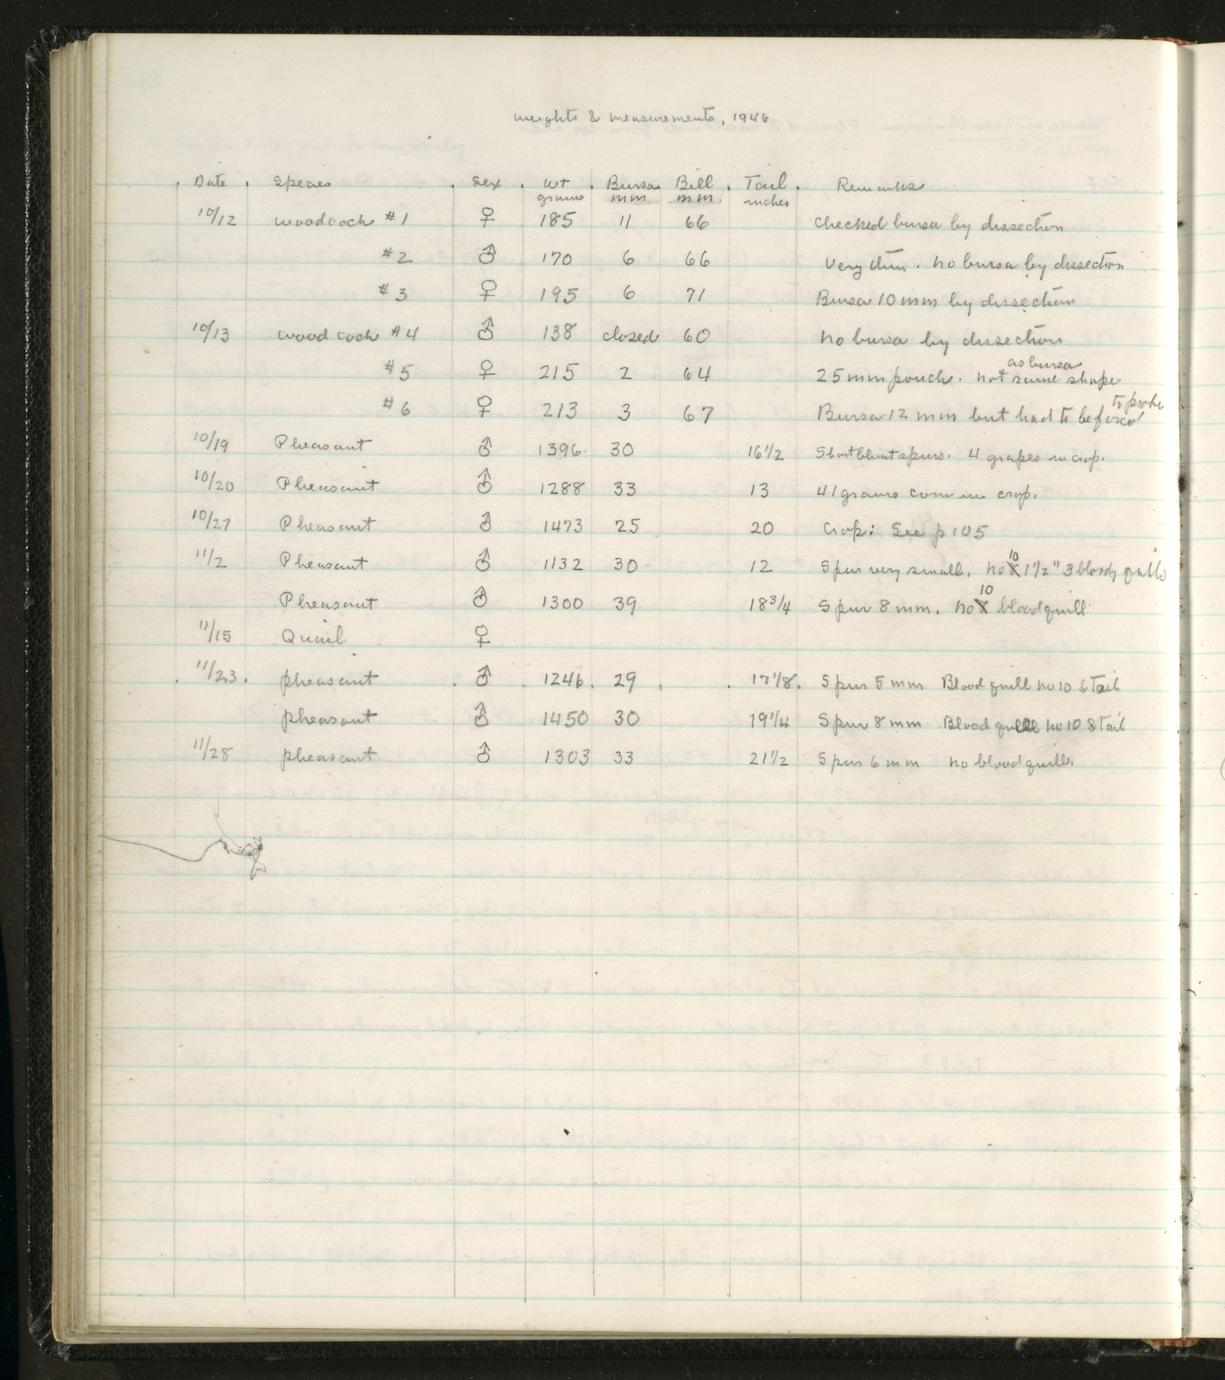 weights & measurements, 1946
Date Species Sex wt grams Bursa mm Bill mm. Tail inches Remarks
10/12 woodcock #1 ♀ 185 11 66 checked bursa by dissection
#2 ♂ 170 6 66 Very thin. no bursa by dissection
#3 ♀ 195 6 71 Bursa 10 mm by dissection
10/13 woodcock #4 ♂ 138 closed 60 no bursa by dissection
#5 ♀ 215 2 64 25 mm pouch. not same shape as bursa
#6 ♀ 213 3 67 Bursa 12 mm but had to be forced to probe
10/19 Pheasant ♂ 1396 30 16 1/2 Short blunt spurs. 4 grapes in crop.
10/20 Pheasant ♂ 1288 33 13 41 grams corn in crop.
10/27 Pheasant ♂ 1473 25 20 Crop: See p 105
11/2 Pheasant ♂ 1132 30 12 Spur very small. no 10 1 1/2" 3 bloody quills
Pheasant ♂ 1300 39 18 3/4 Spur 8 mm. no 10 bloodquill
11/15 Quail ♀
11/23. pheasant ♂ 1246. 29 17 1/8. Spur 5 mm Blood quill no 10 & Tail
pheasant ♂ 1450 30 19 1/4 Spur 8 mm Blood quill no 10 & Tail
11/28 pheasant ♂ 1303 33 21 1/2 Spur 6 mm no blood quills.